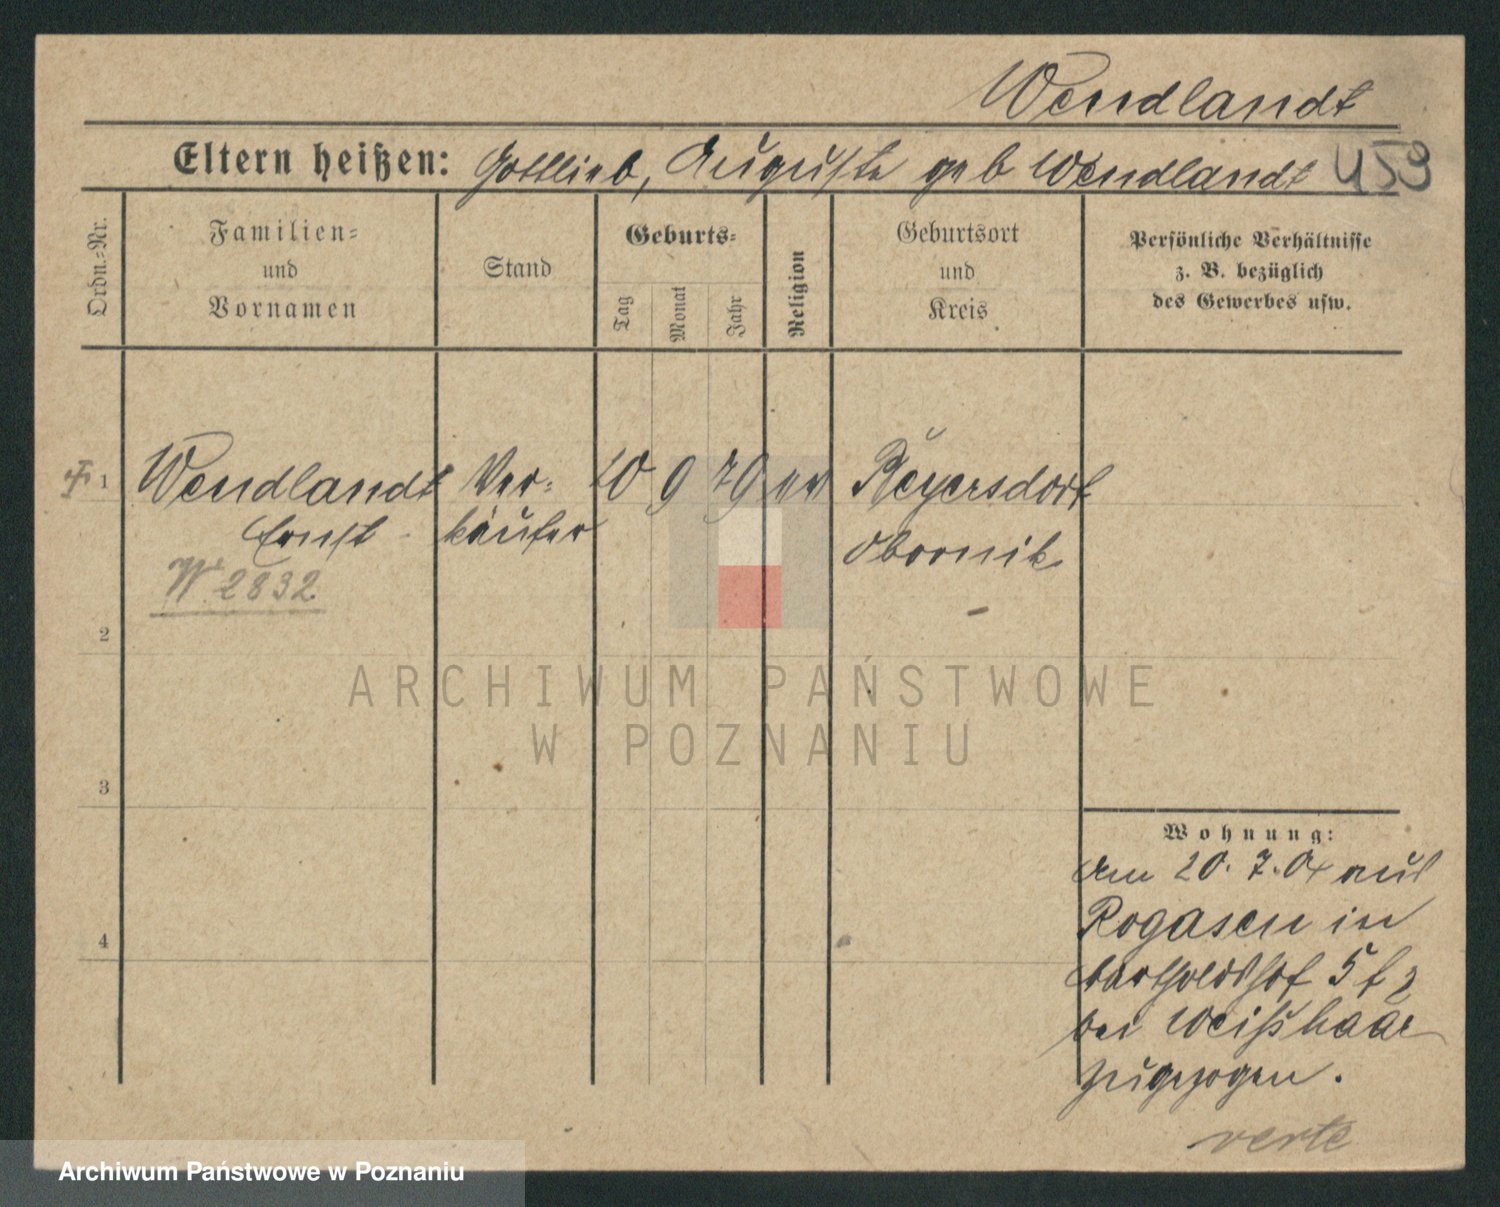 Wendlandt
Eltern heißen: Gottlieb, Auguste geb Wendlandt 459
Ordn.-Nr.
Familien-
und
Vornamen
Stand
Geburts-
Tag
Monat
Jahr
Religion
Geburtsort
und
Kreis
Persönliche Verhältnisse
z. B. bezüglich
des Gewerbes usw.
1 Wendlandt Ver- 10 9 79 ev Beyersdorf
Ernst käufer Obornik
W 2832
2
3
4
Wohnung:
Am 20.7.04 aus
Rogasen in
Bartholdshof 5 f 2
bei Weißhaar
zugezogen.
verte
ARCHIWUM PAŃSTWOWE
W POZNANIU
Archiwum Państwowe w Poznaniu